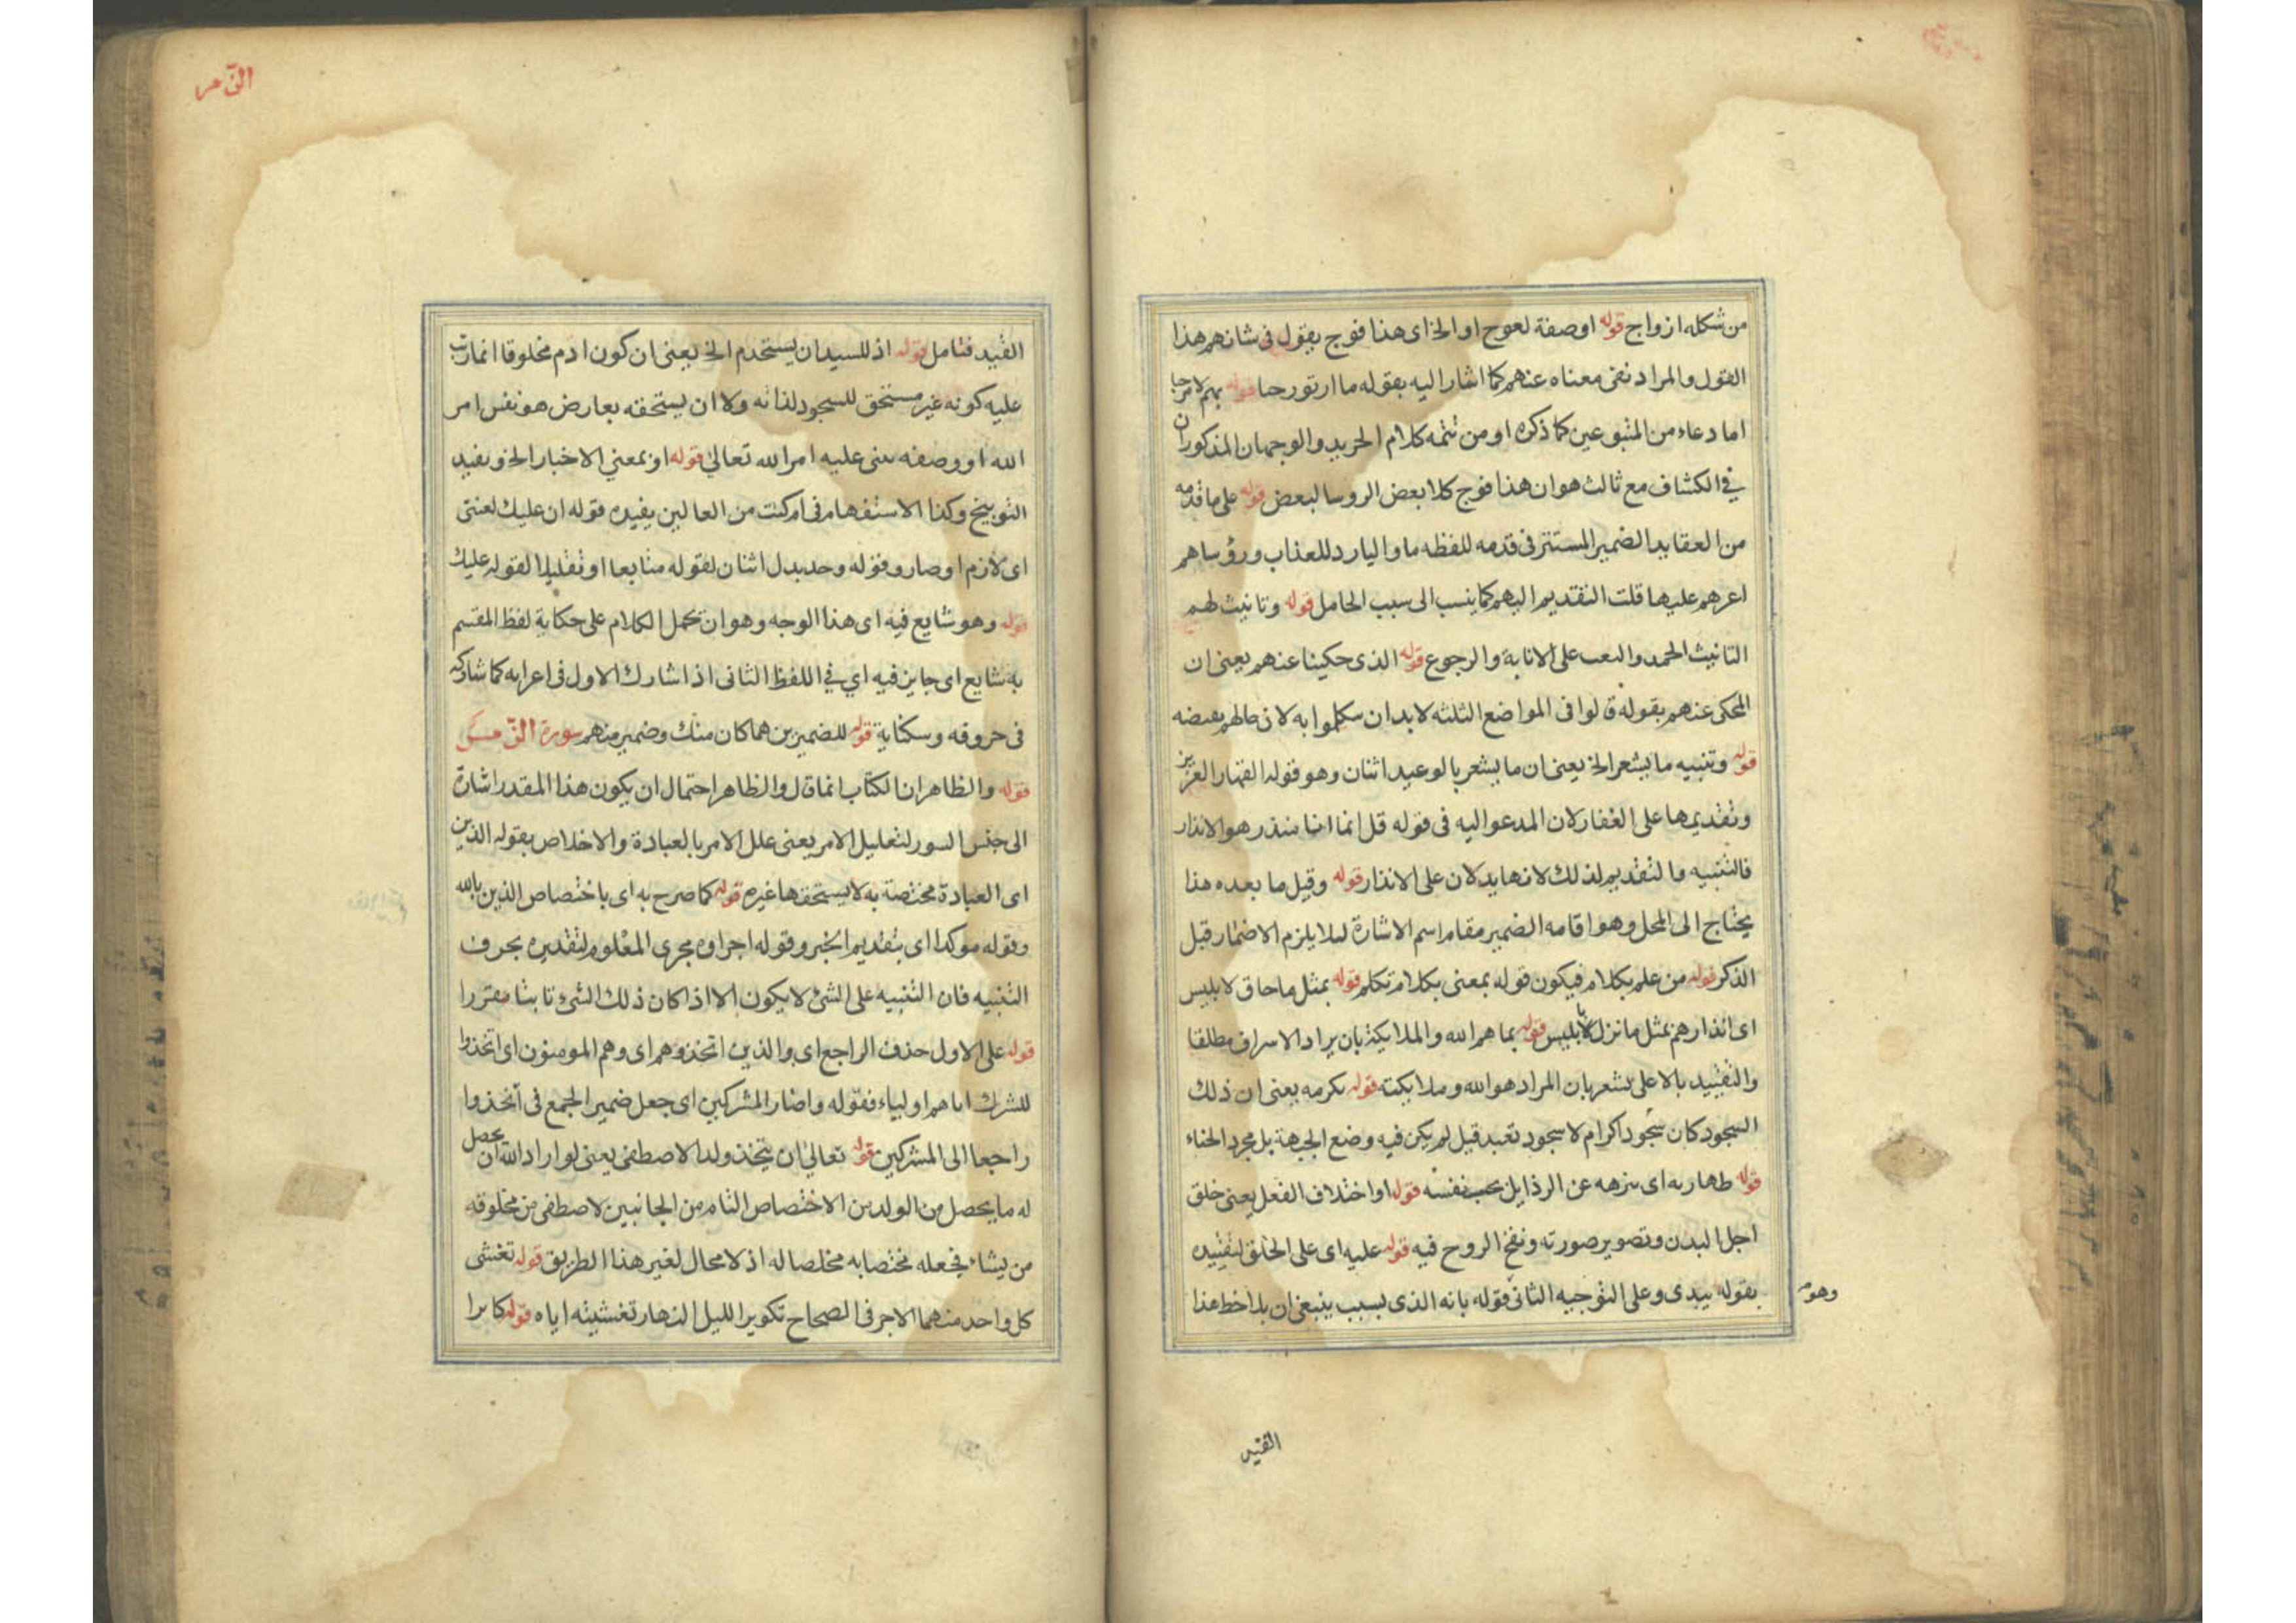 من شكله ازواج قوله اوصفة لعوج او الخ اى هذا فوج يقول فى شانهم هذا
القول والمراد نفى معناه عنهم كما اشار اليه بقوله ما ارتورحبا قوله بهم لا مرحبا
اما دعاء من المتبوعين كما ذكره او من تتمه كلام الخريد والوجهان المذكوران
في الكشاف مع ثالث هو ان هذا فوج كلا بعض الروسا لبعض قوله على ما قدمه
من العقايد الضمير المستتر فى قدمه للفظه ما والبارد للعذاب ورؤساهم
اعرهم عليها قلت التقديم اليهم كما ينسب الى سبب الحامل قوله وتانيث لهم
التانيث الحمد والتعب على الانابة والرجوع قوله الذى حكينا عنهم يعنى ان
المحكى عنهم بقوله قالوا فى المواضع الثلثه لابد ان يتكلموا به لان
قوله وتنبيه ما يشعر الخ يعنى ان ما يشعر بالوعيد اثنان وهو قوله القهار العزيز
وتقديمها على الغفار لان المدعو اليه فى قوله قل انما انا منذر هو الانذار
فالتنبيه والتقديم لذلك لانها يدلان على الانذار قوله وقيل ما بعده هذا
يحتاج الى المحل وهو اقامه الضمير مقام اسم الاشارة لئلا يلزم الاضمار قبل
الذكر قوله من علم بكلام فيكون قوله بمعنى بكلام تكلم قوله بمثل ما حاق لابليس
اى انذارهم بمثل ما نزل لابليس قوله بما هم الله والملايكة بان يراد الاسراف مطلقا
والتقييد بالاعلى يشعر بان المراد هو الله وملايكته قوله تكرمه يعنى ان ذلك
السجود كان سجود اكرام لا سجود تعبد قيل لم يكن فيه وضع الجبهة بل مجرد انحناء
قوله طهارته اى تنزهه عن الرذايل بحسب نفسه قوله او اختلاف الفعل يعنى خلق
اجل البدن وتصوير صورته ونفخ الروح فيه قوله عليه اى على الخلق لتقييده
بقوله بيدى وعلى التوجيه الثانى قوله بانه الذى لسبب ينبغى ان يلاحظ هذا
وهو
القيد
الزمر
القيد فتامل قوله اذ للسيد ان يستخدم الخ يعنى ان كون ادم مخلوقا انما رتب
عليه كونه غير مستحق للسجود لذاته ولا ان يستحقه بعارض هو نفس امر
الله او وصفه بنى عليه امر الله تعالى قوله او بمعنى الاخبار الخ ويفيد
التوبيخ وكذا الاستفهام فى ام كنت من العالين يفيده قوله ان عليك لعنتى
اى لازم اوصار وقوله وحد بدل اثنان لقوله متابعا او تقليلا لقوله عليك
قوله وهو شايع فيه اى هذا الوجه وهو ان تحمل الكلام على حكاية لفظ المقسم
به شايع اى جايز فيه اي في اللفظ الثانى اذا شارك الاول فى اعرابه كما شاركه
فى حروفه وسكناته قوله للضميرين هما كان منك وضمير منهم سورة الزمر
قوله والظاهر ان الكتاب انما قال والظاهر احتمال ان يكون هذا المقدر اشارة
الى جنس السور لتعليل الامر يعنى علل الامر بالعبادة والاخلاص بقوله الدين
اى العبادة مختصة به لا يستحقها غيره قوله كما صرح به اى باختصاص الدين بالله
وقوله موكدا اى بتقديم الخبر وقوله اجراوه مجرى المعلوم لتقديره بحرف
التنبيه فان التنبيه على الشئ لا يكون الا اذا كان ذلك الشئ ثابتا مقررا
قوله على الاول حذف الراجع اى والذين اتخذوهم اى وهم المومنون اى اتخذوا
للشرك اياهم اولياء فقوله واضمار المشركين اى جعل ضمير الجمع فى اتخذوا
راجعا الى المشركين قوله تعالى ان يتخذ ولدا لاصطفى يعنى لو اراد الله ان يحصل
له ما يحصل من الولد من الاختصاص التام من الجانبين لاصطفى من مخلوقه
من يشاء فجعله مختصا به مخلصا له اذ لا محال لغير هذا الطريق قوله تغشى
كل واحد منهما الاخر فى الصحاح تكوير الليل النهار تغشيته اياه قوله كابرا